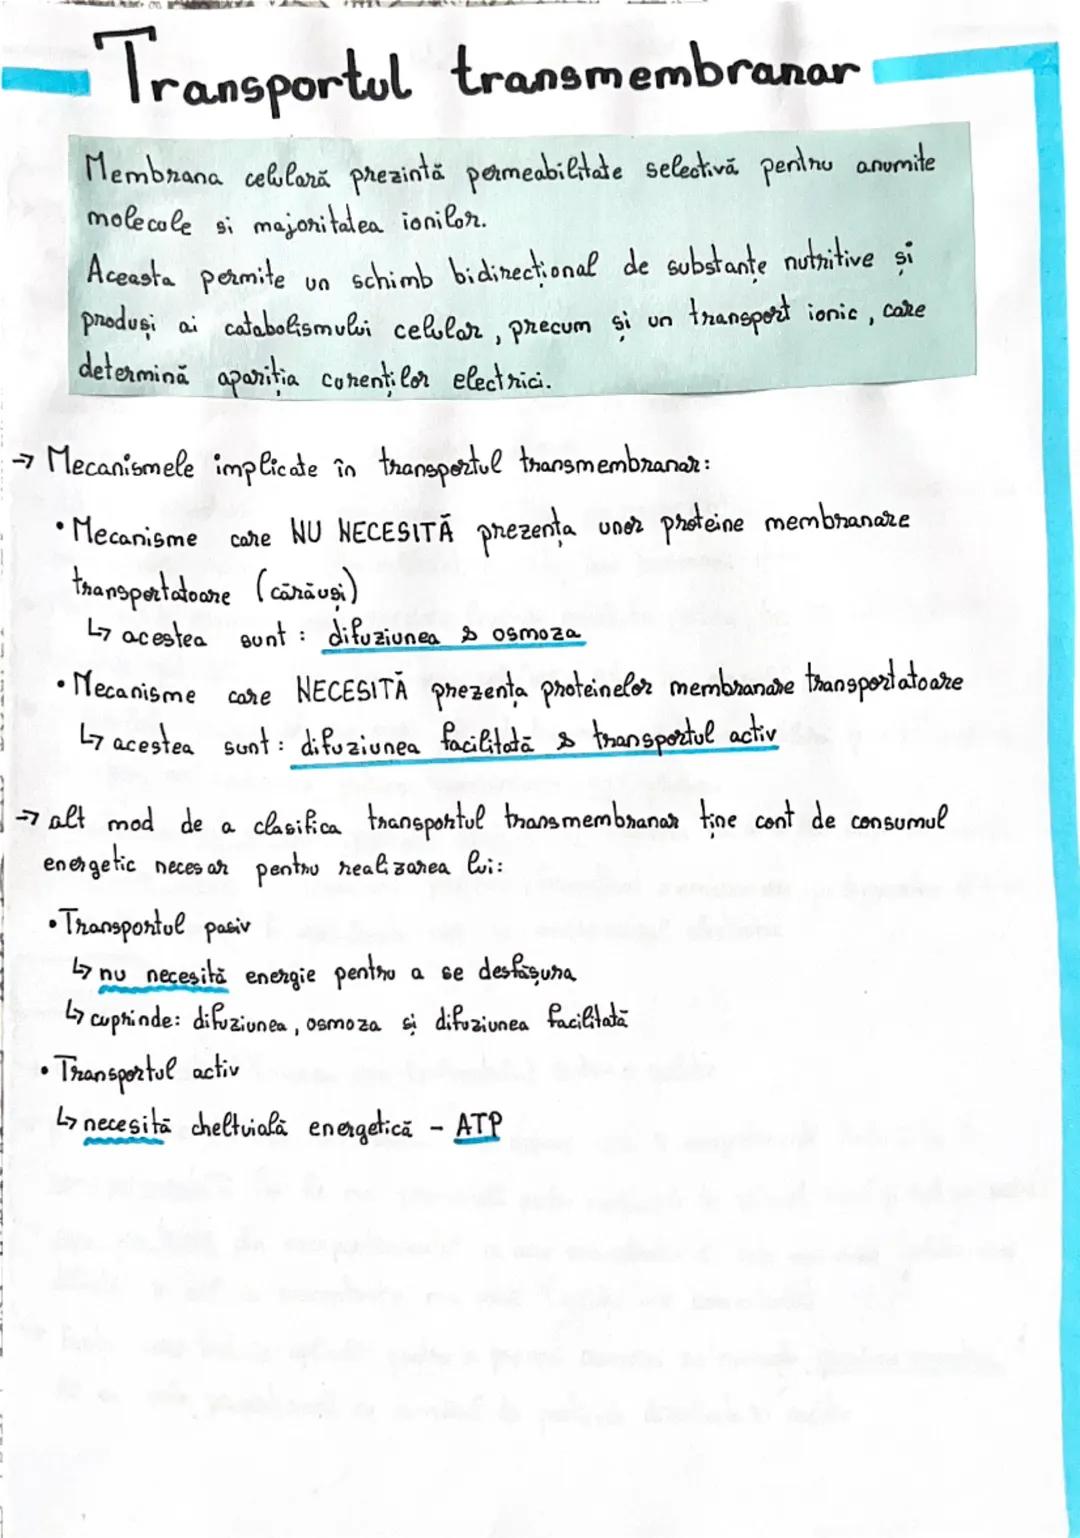 Transportul transmembranar
Membrana celulară prezintă permeabilitate selectivă pentru anumite
molecule si majoritatea ionilor.
Aceasta permite un schimb bidirecțional de substanțe nutritive și
produși ai catabolismului celular, precum și un transport ionic, care
determină apariția curenților electrici.
→ Mecanismele implicate în transportul transmembranar:
• Mecanisme care NU NECESITĂ prezența unor proteine membranare
transportatoare (cărăuși)
↳ acestea sunt: difuziunea & osmoza
• Mecanisme care NECESITĂ prezența proteinelor membranare transportatoare
↳ acestea sunt: difuziunea facilitată & transportul activ
→ alt mod de a clasifica transportul transmembranar ține cont de consumul
energetic necesar pentru realizarea lui:
• Transportul pasiv
↳ nu necesită energie pentru a se desfășura
↳ cuprinde: difuziunea, osmoza și difuziunea facilitată
• Transportul activ
↳ necesită cheltuială energetică - ATP